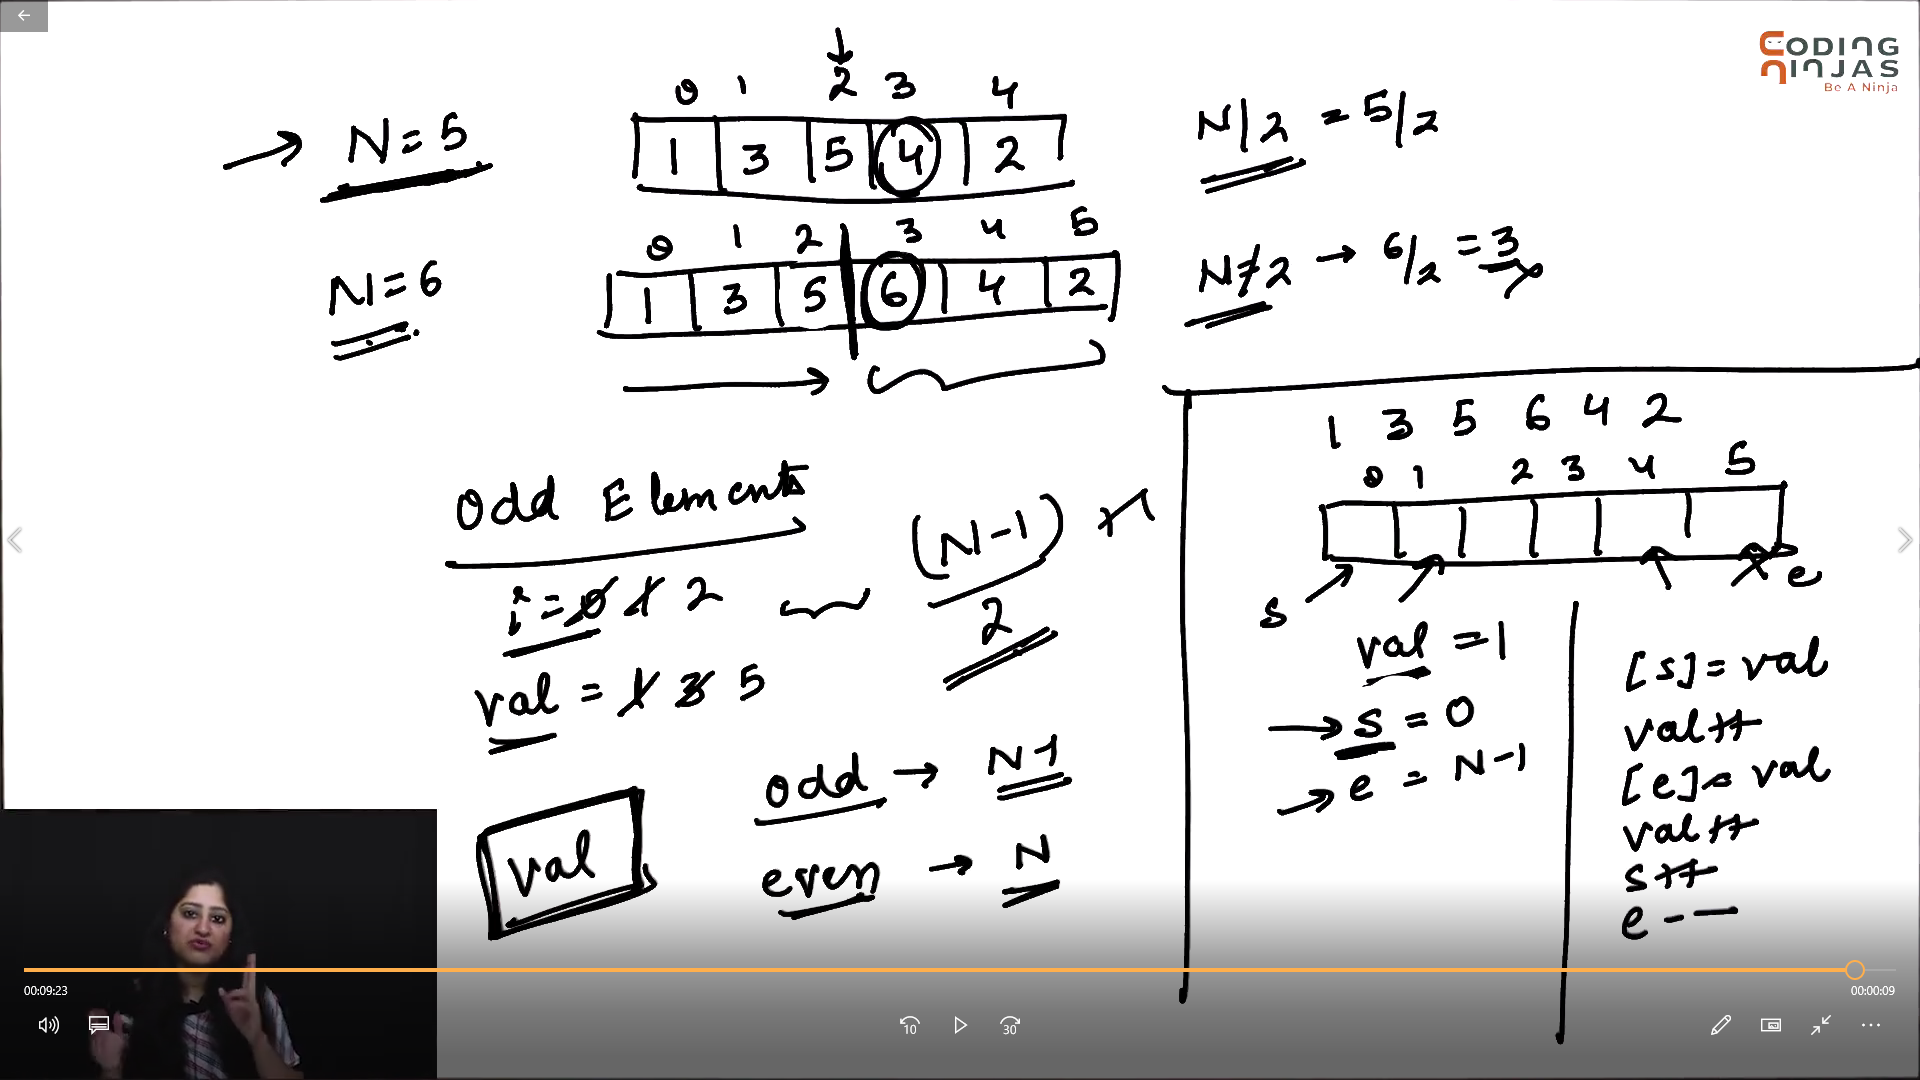 CODING
NINJAS
Be A Ninja
0 1 2 3 4
N=5
1 3 5 4 2
N/2 = 5/2
0 1 2 3 4 5
N=6
1 3 5 6 4 2
N/2 → 6/2 = 3
Odd Elements
i = 0 1 2
(N-1)
2
val = 1 3 5
odd → N-1
val
even → N
1 3 5 6 4 2
0 1 2 3 4 5
s
e
val = 1
s = 0
e = N-1
[s] = val
val++
[e] = val
val++
s++
e--
00:09:23
00:00:09
10
30